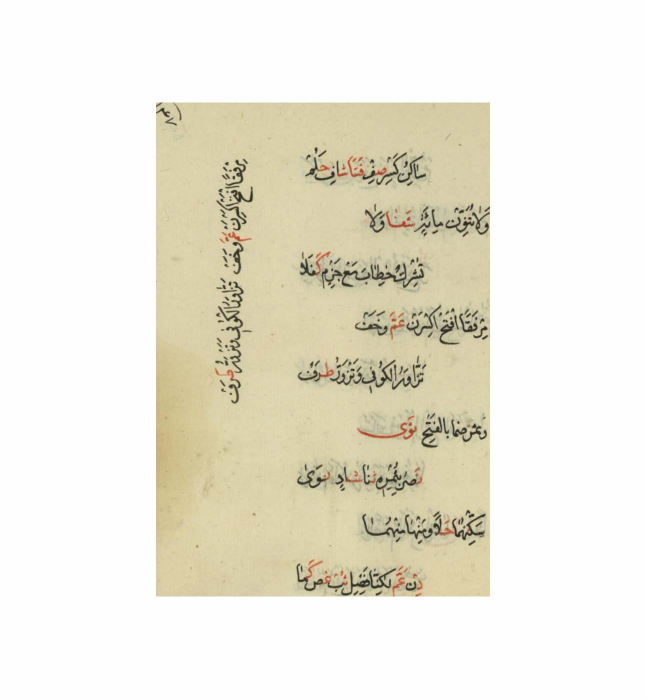 ساكن كسر صف فتا شاف حكم
ولا ننون مائة شفا ولا
تشرك خطاب مع جزم كملا
مرفقا افتح اكسرن عم وخف
تزاور الكوفي وتزور ظرف
وثمر ضما بالفتح ثوى
نصر بثمره ثنا شاد نوى
سكنهما حلا ومنها منهما
دن عم لكنا فصل ثب غص كما
مرفقا افتح اكسرن عم وخف تزاور الكوفي وتزور ظرف